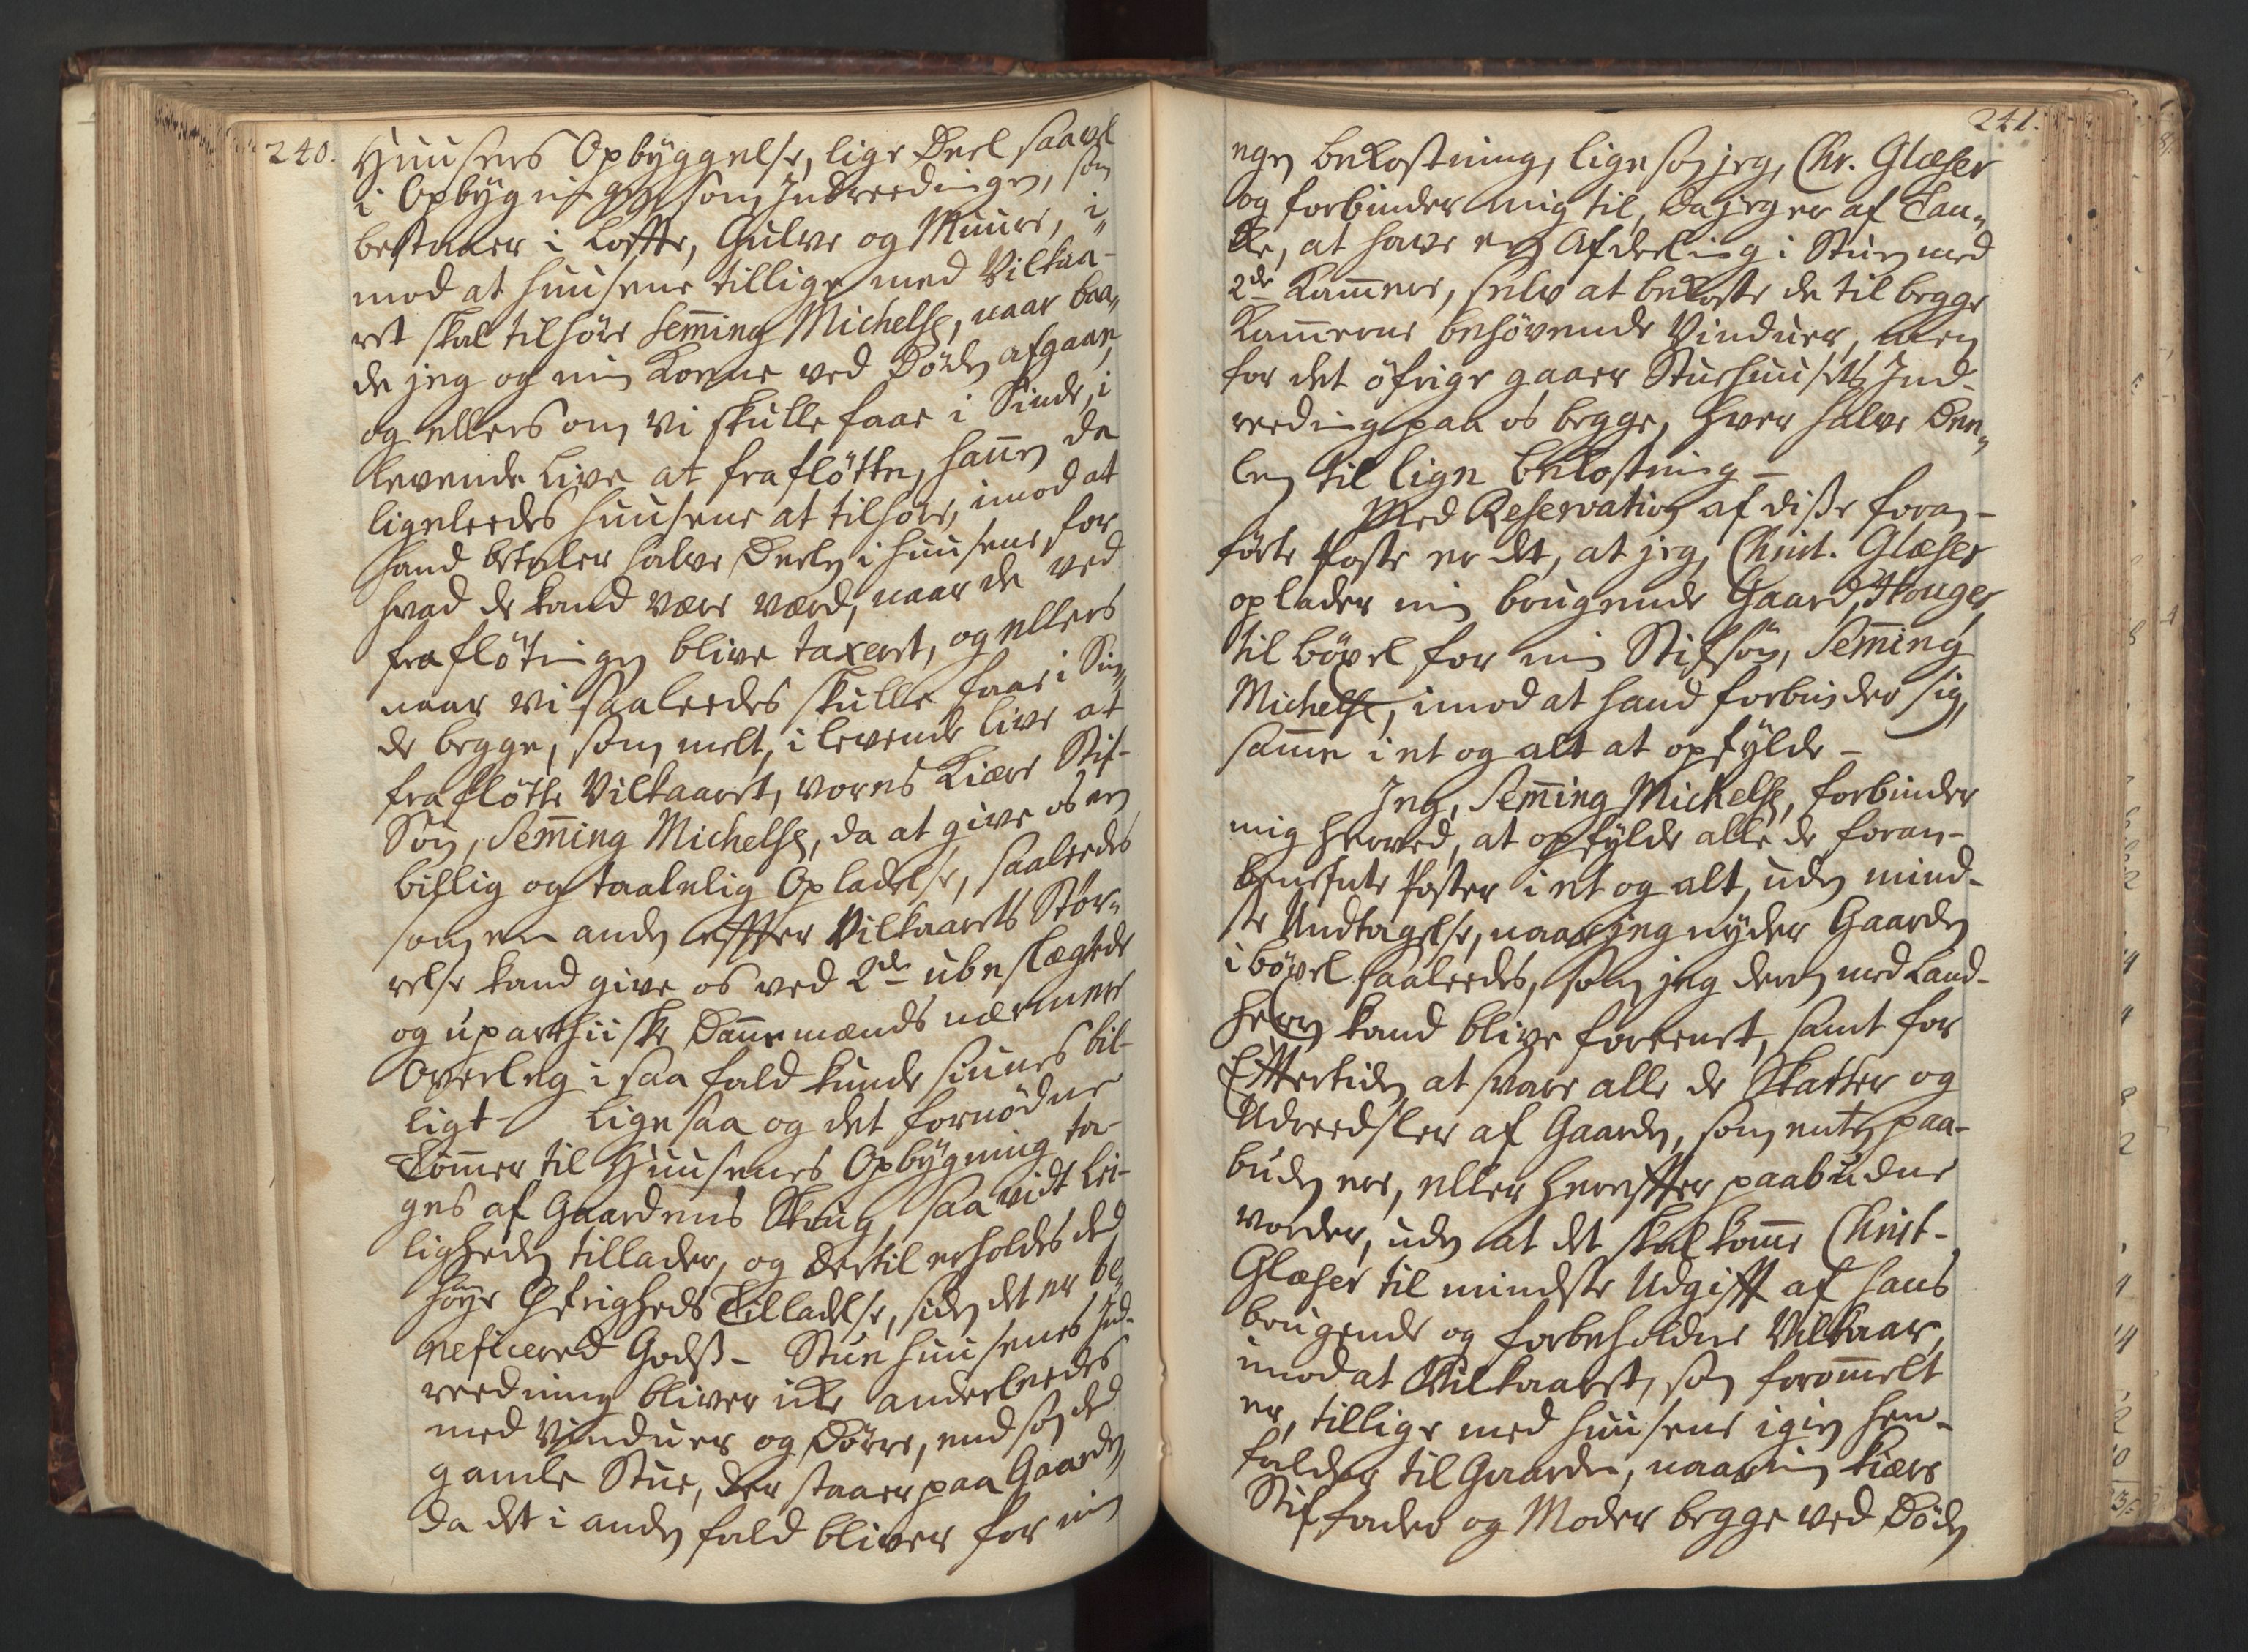 240.
Huusenes Opbyggelse, lige Deel saavel
i Opbygningen som Indreedingen, som
bestaaer i Loffte, Gulve og Muure, i„
mod at huusene tillige med Vilkaa-
ret skal tilhöre Semming Michelsen, naar baa„
de jeg og min Kone ved Döden afgaar,
og ellers om vi skulle faae i Sinde, i
levende Live at fraflötte, hannem da
ligeleedes huusene at tilhöre, imod at
hand betaler halve Deelen i huusene, for
hvad de kand være værd, naar de ved
fraflötningen blive taxeret, og ellers
naar vi saaleedes skulle faae i Sin„
de begge, som melt, i levende Live at
fraflötte Vilkaaret, vores Kiære Stif-
Sön, Semming Michelsen, da at give os en
billig og taalelig Opladelse, saaleedes
som en anden effter Vilkaarets Stör-
relse kand give os ved 2de ubeslægtede
og upartiiske Dannemænds nærmere
Overleg i saa fald kunde siunes bil-
ligt - Ligesaa og det fornödne
Tömmer til Huusenes Opbygning ta-
ges af Gaardens Skoug, saa vidt Lei-
ligheden tillader, og dertil erholdes det
höye Öfrigheds Tilladelse, siden det er be„
neficered Gods - Stue huusenes Ind-
reedning bliver icke anderleedes
med Vinduer og Dörre, end som det
gamle Stue, der staaer paa Gaarden,
da det i anden fald bliver for min
241.
egen bekostning, ligesom jeg, Chr. Glæser
og forbinder mig til, da jeg er af Tan„
ke, at have en Afdeeling i Stuen med
2de Kammere, selv at bekoste de til begge
Kammerne behövende Vinduer, men
for det öfrige gaaer Stuehuusets Ind-
reeding paa os begge, hver halve Dee„
len til lige bekostning -
Med Reservation af disse foran-
förte Poste er det, at jeg, Christ. Glæser
oplader min brugende Gaard, Houger,
til böxel for min Stifsön, Semming
Michelsen, imod at hand forbinder sig,
samme i et og alt at opfylde -
Jeg, Semming Michelsen, forbinder
mig herved, at opfylde alle de foran-
benefnte Poster i et og alt, uden mind-
ste Undtagelse, naar jeg nyder Gaarden
i böxel saaleedes, som jeg derom med Land-
herren kand blive foreenet, samt for
Eftertiden at svare alle de Skatter og
Udreedsler af Gaarden, som enten paa-
buden ere, eller hereffter paabudne
vorder, uden at det skal komme Christ-
Glæser til mindste Udgifft af hans
brugende og forbeholdne Vilkaar,
imod at Vilkaaret, som forommelt
er, tillige med huusene igien hen-
falder til Gaarden, naar min kiære
Stiffader og Moder begge ved Döden